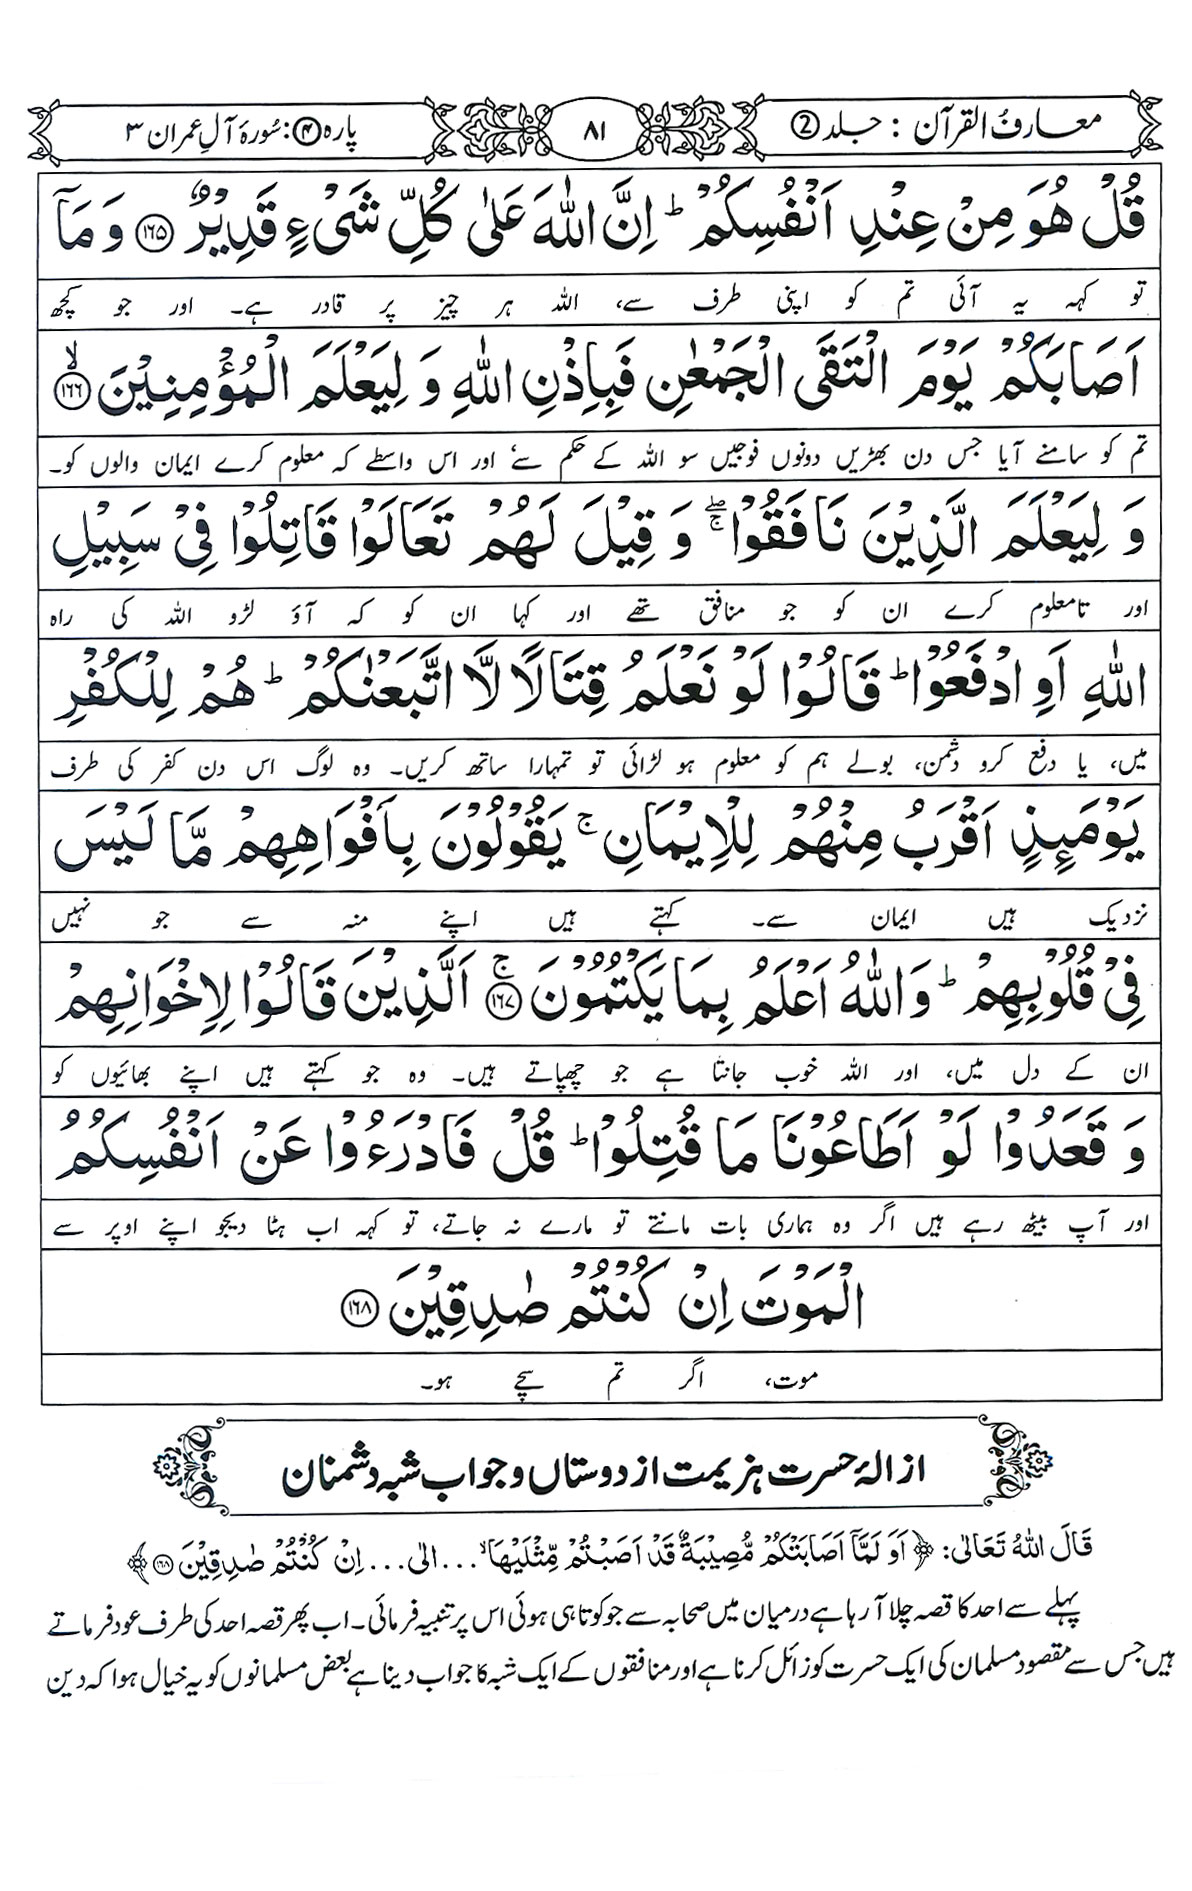 معارفُ القرآن : جلد ②
۸۱
پارہ ④ : سُورۂ آلِ عمران ۳
قُلْ هُوَ مِنْ عِنْدِ اَنْفُسِكُمْ ؕ اِنَّ اللّٰهَ عَلٰى كُلِّ شَیْءٍ قَدِیْرٌ ﴿۱۶۵﴾ وَ مَاۤ
تو کہہ یہ آئی تم کو اپنی طرف سے، اللہ ہر چیز پر قادر ہے۔ اور جو کچھ
اَصَابَكُمْ یَوْمَ الْتَقَى الْجَمْعٰنِ فَبِاِذْنِ اللّٰهِ وَ لِیَعْلَمَ الْمُؤْمِنِیْنَ ﴿۱۶۶﴾ۙ
تم کو سامنے آیا جس دن بھڑیں دونوں فوجیں سو اللہ کے حکم سے، اور اس واسطے کہ معلوم کرے ایمان والوں کو۔
وَ لِیَعْلَمَ الَّذِیْنَ نَافَقُوْا ۖۚ وَ قِیْلَ لَهُمْ تَعَالَوْا قَاتِلُوْا فِیْ سَبِیْلِ
اور تا معلوم کرے ان کو جو منافق تھے اور کہا ان کو کہ آؤ لڑو اللہ کی راہ
اللّٰهِ اَوِ ادْفَعُوْا ؕ قَالُوْا لَوْ نَعْلَمُ قِتَالًا لَّا اتَّبَعْنٰكُمْ ؕ هُمْ لِلْكُفْرِ
میں، یا دفع کرو دشمن، بولے ہم کو معلوم ہو لڑائی تو تمہارا ساتھ کریں۔ وہ لوگ اس دن کفر کی طرف
یَوْمَىِٕذٍ اَقْرَبُ مِنْهُمْ لِلْاِیْمَانِ ۚ یَقُوْلُوْنَ بِاَفْوَاهِهِمْ مَّا لَیْسَ
نزدیک ہیں ایمان سے۔ کہتے ہیں اپنے منہ سے جو نہیں
فِیْ قُلُوْبِهِمْ ؕ وَاللّٰهُ اَعْلَمُ بِمَا یَكْتُمُوْنَ ﴿۱۶۷﴾ۚ اَلَّذِیْنَ قَالُوْا لِاِخْوَانِهِمْ
ان کے دل میں، اور اللہ خوب جانتا ہے جو چھپاتے ہیں۔ وہ جو کہتے ہیں اپنے بھائیوں کو
وَ قَعَدُوْا لَوْ اَطَاعُوْنَا مَا قُتِلُوْا ؕ قُلْ فَادْرَءُوْا عَنْ اَنْفُسِكُمُ
اور آپ بیٹھ رہے ہیں اگر وہ ہماری بات مانتے تو مارے نہ جاتے، تو کہہ اب ہٹا دیجو اپنے اوپر سے
الْمَوْتَ اِنْ كُنْتُمْ صٰدِقِیْنَ ﴿۱۶۸﴾
موت، اگر تم سچے ہو۔
ازالۂ حسرت ہزیمت از دوستاں و جواب شبہ دشمنان
قَالَ اللّٰهُ تَعَالٰى: ﴿اَوَ لَمَّاۤ اَصَابَتْكُمْ مُّصِیْبَةٌ قَدْ اَصَبْتُمْ مِّثْلَیْهَا ۙ... الٰی ... اِنْ كُنْتُمْ صٰدِقِیْنَ ۱۶۸﴾
پہلے سے احد کا قصہ چلا آ رہا ہے درمیان میں صحابہ سے جو کوتاہی ہوئی اس پر تنبیہ فرمائی۔ اب پھر قصہ احد کی طرف عود فرماتے
ہیں جس سے مقصود مسلمان کی ایک حسرت کو زائل کرنا ہے اور منافقوں کے ایک شبہ کا جواب دینا ہے بعض مسلمانوں کو یہ خیال ہوا کہ دین